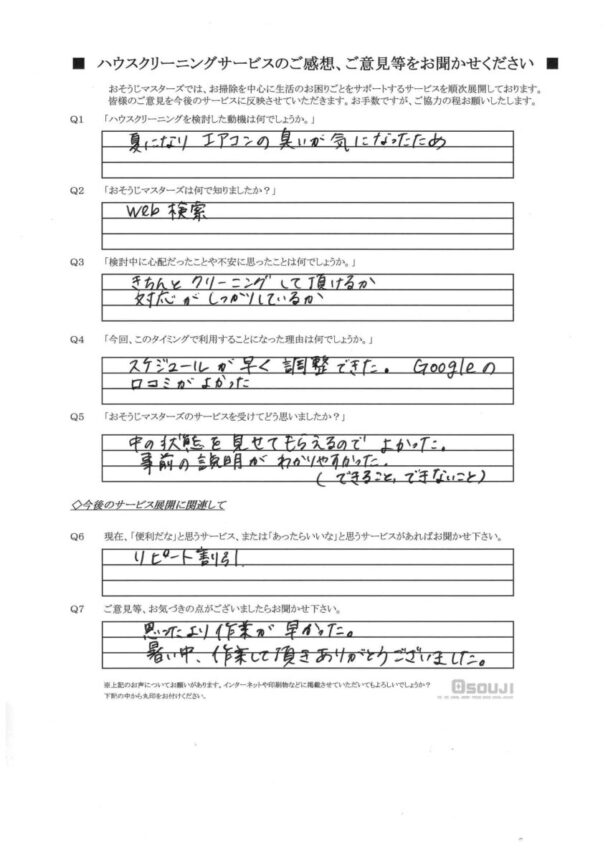 ■ ハウスクリーニングサービスのご感想、ご意見等をお聞かせください ■
おそうじマスターズでは、お掃除を中心に生活のお困りごとをサポートするサービスを順次展開しております。
皆様のご意見を今後のサービスに反映させていただきます。お手数ですが、ご協力の程お願いしたします。
Q1 「ハウスクリーニングを検討した動機は何でしょうか。」
夏になり エアコンの臭いが気になったため
Q2 「おそうじマスターズは何で知りましたか？」
Web 検索
Q3 「検討中に心配だったことや不安に思ったことは何でしょうか。」
きちんと クリーニング して頂けるか
対応が しっかりしているか
Q4 「今回、このタイミングで利用することになった理由は何でしょうか。」
スケジュールが早く調整できた。 Googleの
口コミがよかった
Q5 「おそうじマスターズのサービスを受けてどう思いましたか？」
中の状態を見せてもらえるので よかった。
事前の説明が わかりやすかった.
(できること, できないこと)
◇今後のサービス展開に関連して
Q6 現在、「便利だな」と思うサービス、または「あったらいいな」と思うサービスがあればお聞かせ下さい。
リピート割引
Q7 ご意見等、お気づきの点がございましたらお聞かせ下さい。
思ったより作業が早かった。
暑い中、作業して頂きありがとうございました。
※上記のお声についてお願いがあります。インターネットや印刷物などに掲載させていただいてもよろしいでしょうか？
下記の中から丸印をお付けください。
OSOUJI